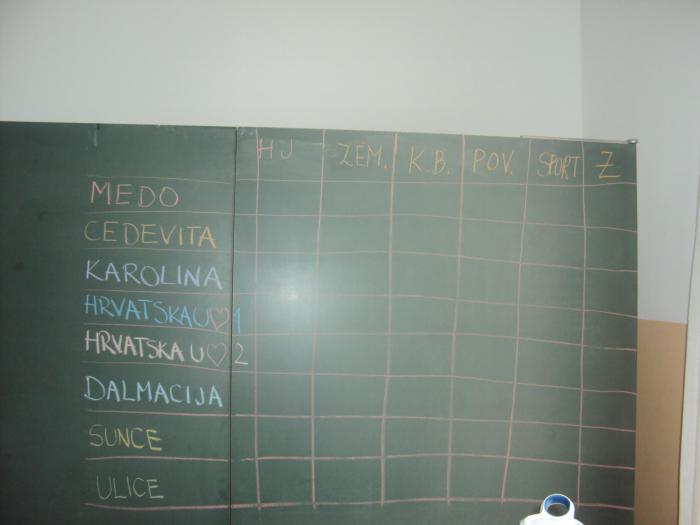 HJ ZEM. K.B. POV. SPORT Z
MEDO
CEDEVITA
KAROLINA
HRVATSKA U ♡ 1
HRVATSKA U ♡ 2
DALMACIJA
SUNCE
ULICE